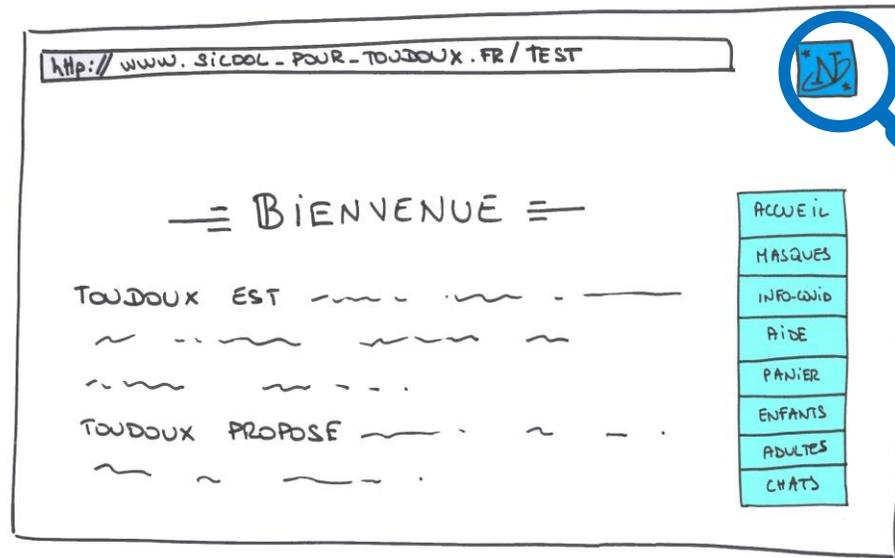 http:// www.SiCOOL_POUR_TOUDOUX.FR/TEST
N
BiENVENUE
TOUDOUX EST
TOUDOUX PROPOSE
ACCUEiL
MASQUES
iNFO-COViD
AiDE
PANiER
ENFANTS
ADULTES
CHATS